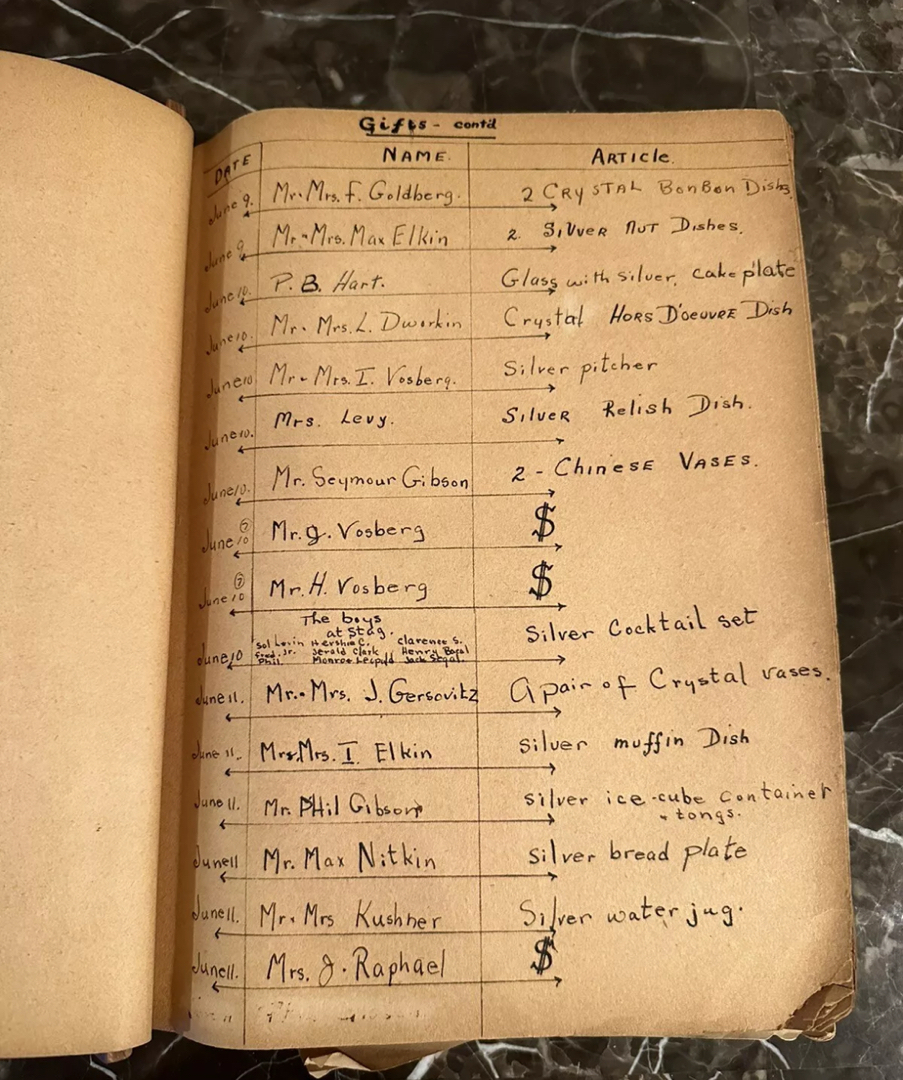 Gifts - contd
DATE NAME. ARTICLE.
June 9. Mr. Mrs. F. Goldberg. 2 CRYSTAL BonBon Dishs
June 9 Mr. Mrs. Max Elkin 2. SILVER NUT Dishes.
June 10. P. B. Hart. Glass with silver, cake plate
June 10. Mr. Mrs. L. Dworkin Crystal HORS D'OEUVRE Dish
June 10 Mr. Mrs. I. Vosberg. Silver pitcher
June 10. Mrs. Levy. SILVER Relish Dish.
June 10. Mr. Seymour Gibson 2 - CHINESE VASES.
June 10 Mr. J. Vosberg $
June 10 Mr. H. Vosberg $
The boys
at stag.
June 10 Silver Cocktail set
Sol Levin Hershie C. Clarence S.
Fred. Jr. Jerald Clark Henry
Phil. Monroe Leopold Jack Segal.
June 11. Mr. Mrs. J. Gersovitz A pair of Crystal vases.
June 11. Mr. Mrs. I Elkin silver muffin Dish
June 11. Mr. PHil Gibson silver ice-cube container
+ tongs.
June 11 Mr. Max Nitkin silver bread plate
June 11. Mr. Mrs Kushner Silver water jug.
June 11. Mrs. J. Raphael $